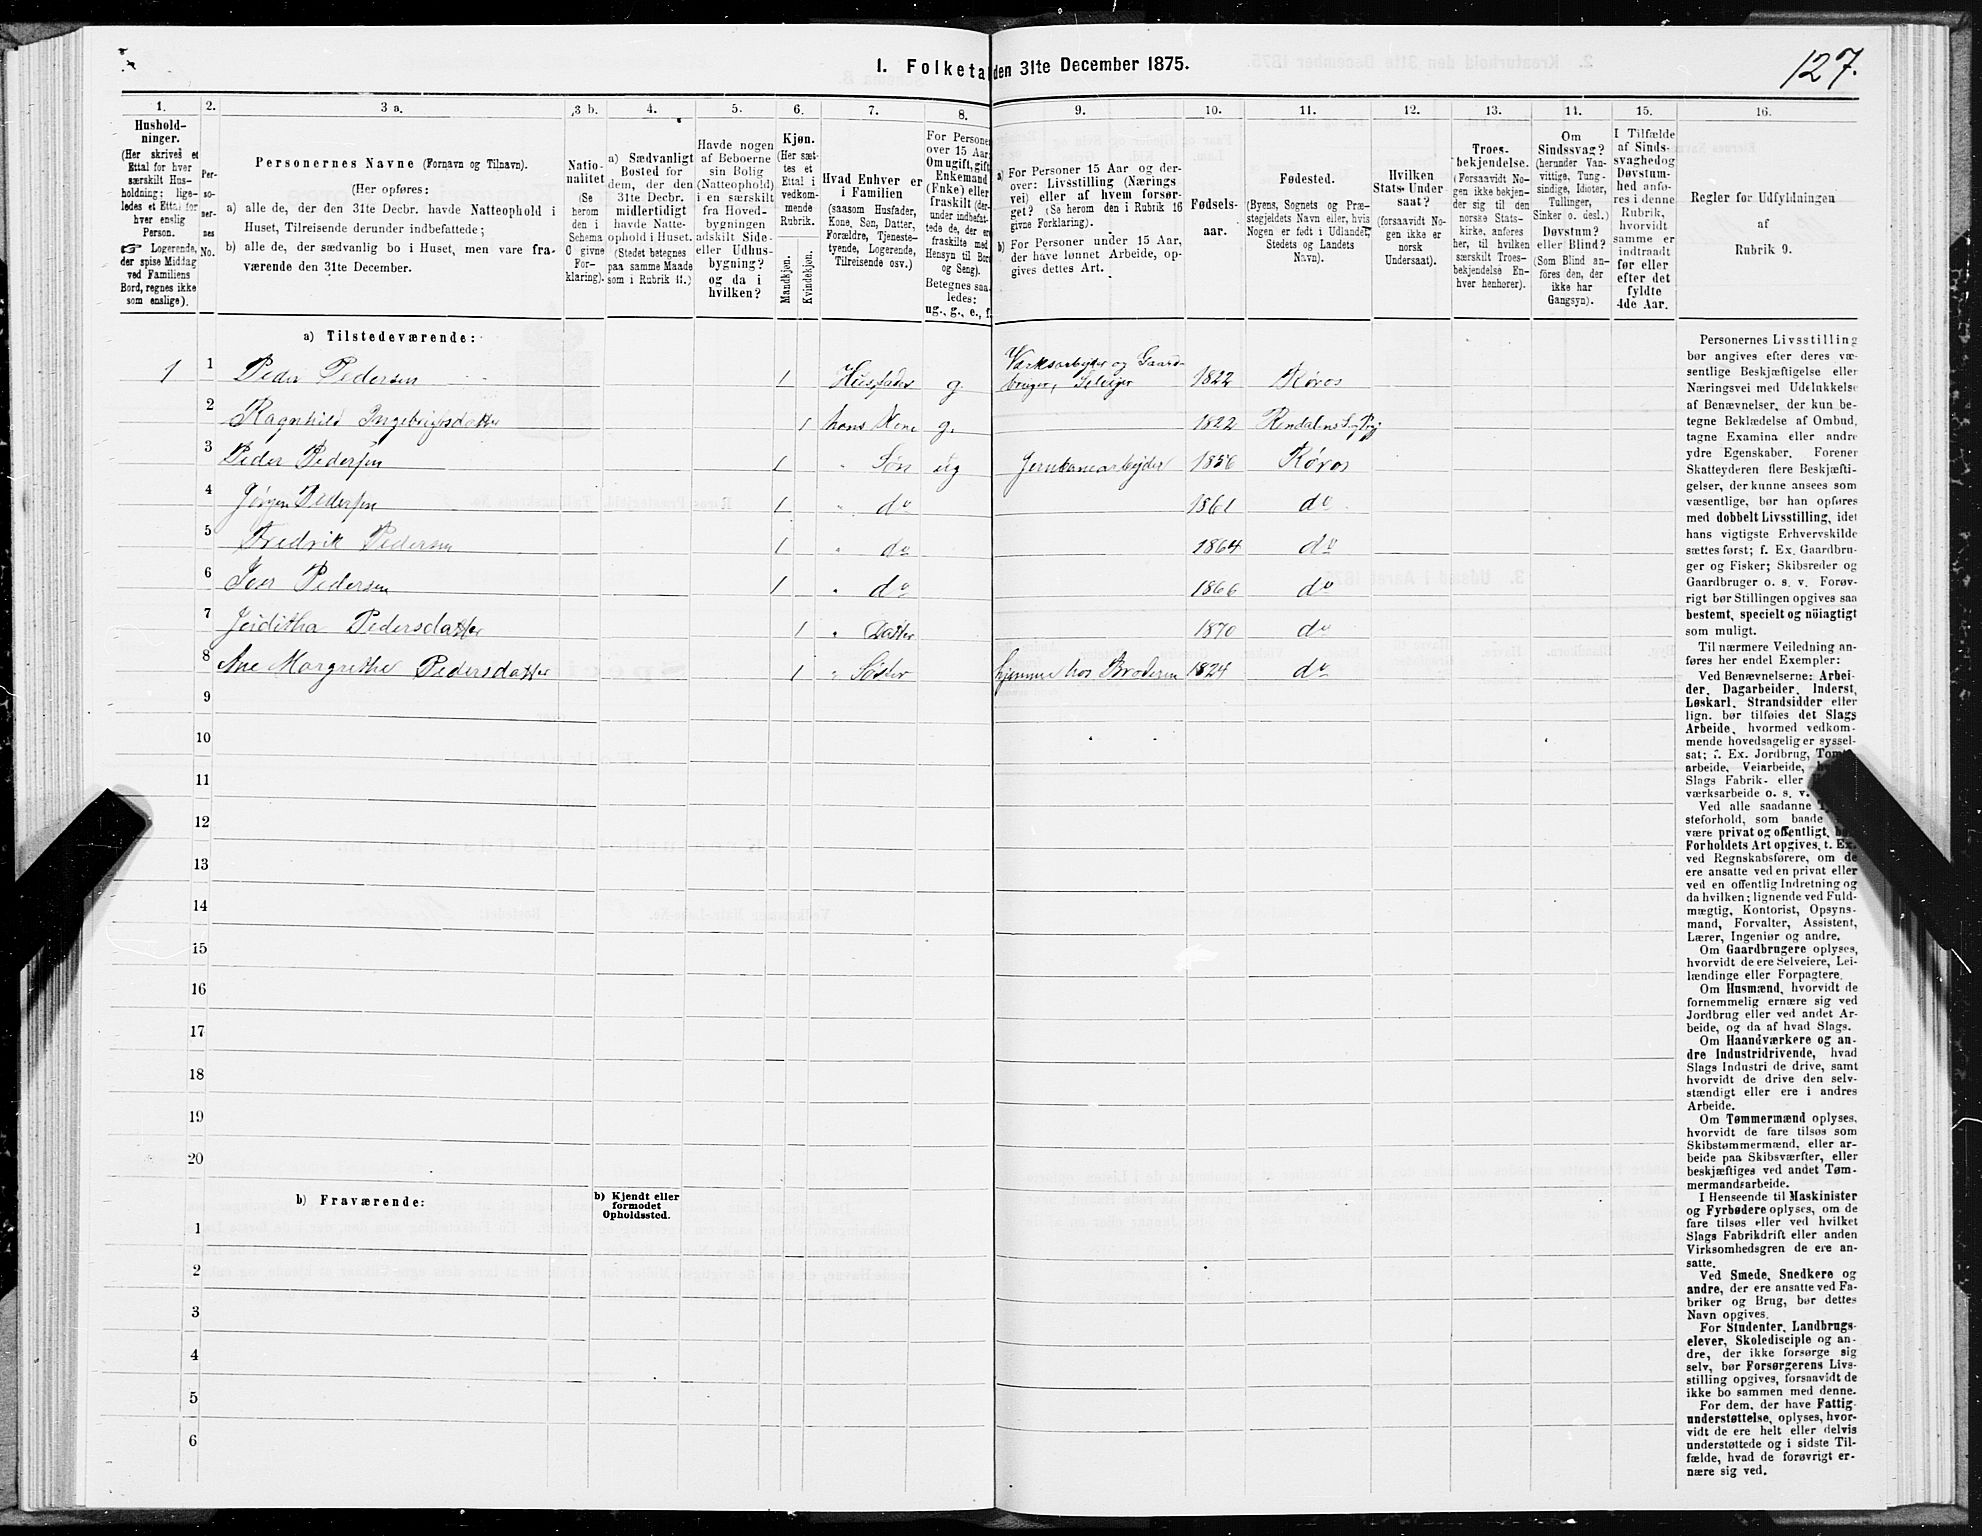 127.
I. Folketa den 31te December 1875.
1. 2. 3 a. 3 b. 4. 5. 6. 7. 8. 9. 10. 11. 12. 13. 14. 15. 16.
Hushold-
ninger.
(Her skrives et
Ettal for hver
særskilt Hus-
holdning; lige-
ledes et Ettal for
hver enslig
Person.
☞ Logerende,
der spise Middag
ved Familiens
Bord, regnes ikke
som enslige).
Per-
so-
ner-
nes
No.
Personernes Navne (Fornavn og Tilnavn).
(Her opføres:
a) alle de, der den 31te Decbr. havde Natteophold i
Huset, Tilreisende derunder indbefattede;
b) alle de, der sædvanlig bo i Huset, men vare fra-
værende den 31te December.
Natio-
nalitet
(Se
herom
den i
Schema
6 givne
For-
klaring).
a) Sædvanligt
Bosted for
dem, der den
31te Decbr.
midlertidigt
havde Natte-
ophold i Huset.
(Stedet betegnes
paa samme Maade
som i Rubrik 11.)
Havde nogen
af Beboerne
sin Bolig
(Natteophold)
i en særskilt
fra Hoved-
bygningen
adskilt Side-
eller Udhus-
bygning?
og da i
hvilken?
Kjøn.
(Her sæt-
tes et
Ettal i
vedkom-
mende
Rubrik.
Mandkjøn.
Kvindekjøn.
Hvad Enhver er
i Familien
(saasom Husfader,
Kone, Søn, Datter,
Forældre, Tjeneste-
tyende, Logerende,
Tilreisende osv.)
For Persone
over 15 Aar:
Om ugift, gift,
Enkemand
(Enke) eller
fraskilt (der-
under indbefat-
tede de, der er
fraskilte med
Hensyn til Bord
og Seng).
Betegnes saa-
ledes:
ug., g., e., f.
a) For Personer 15 Aar og der-
over: Livsstilling (Nærings
vei) eller af hvem forsør-
get? (Se herom den i Rubrik 16
givne Forklaring).
b) For Personer under 15 Aar,
der have lønnet Arbeide, op-
gives dettes Art.
Fødsels-
aar.
Fødested.
(Byens, Sognets og Præ-
stegjeldets Navn eller, hvis
Nogen er født i Udlandet,
Stedets og Landets
Navn).
Hvilken
Stats Under
saat?
(forsaavidt No-
gen ikke er
norsk
Undersaat).
Troes-
bekjendelse.
(Forsaavidt No-
gen ikke bekjen-
der sig til den
norske Stats-
kirke, anføres
her, til hvilken
særskilt Troes-
bekjendelse En-
hver henhører).
Om
Sindssvag?
(herunder Van-
vittige, Tung-
sindige, Idioter,
Tullinger,
Sinker o. desl.)
Døvstum?
eller Blind?
(Som Blind an-
føres den, der
ikke har
Gangsyn).
I Tilfælde
af Sinds-
svaghed og
Døvstum-
hed anfø-
res i denne
Rubrik,
hvorvidt
samme er
indtraadt
før eller
efter det
fyldte
4de Aar.
Regler for Udfyldningen
af
Rubrik 9.
a) Tilstedeværende:
1 1 Peder Pedersen 1 Husfader g. Værksarbejder og Gaard-
bruger, Selvejer 1822 Røros
2 Ragnhild Ingebrigtsdatter 1 hans Kone g. 1822 Rendalens
3 Peder Pedersen 1 " Søn ug Jernbanearbejder 1856 Røros
4 Jørgen Pedersen 1 " do 1861 do
5 Fredrik Pedersen 1 " do 1864 do
6 Iver Pedersen 1 " do 1866 do
7 Pedersdatter 1 " Datter 1870 do
8 Ane Margrethe Pedersdatter 1 " Søster hjemme hos Broderen 1824 do
9
10
11
12
13
14
15
16
17
18
19
20
b) Fraværende:
b) Kjendt eller
formodet
Opholdssted.
1
2
3
4
5
6
Personernes Livsstilling
bør angives efter deres væ-
sentlige Beskjæftigelse eller
Næringsvei med Udelukkelse
af Benævnelser, der kun be-
tegne Beklædelse af Ombud,
tagne Examina eller andre
ydre Egenskaber. Forener
Skatteyderen flere Beskjæfti-
gelser, der kunne ansees som
væsentlige, bør han opføres
med dobbelt Livsstilling, idet
hans vigtigste Erhvervskilde
sættes først; f. Ex. Gaardbru-
ger og Fisker; Skibsreder og
Gaardbruger o. s. v. Forøv-
rigt bør Stillingen opgives saa
bestemt, specielt og nöiagtigt
som muligt.
Til nærmere Veiledning an-
føres her endel Exempler:
Ved Benævnelserne: Arbei-
der, Dagarbeider, Inderst,
Løskarl, Strandsidder eller
lign. bør tilføies det Slags
Arbeide, hvormed vedkom-
mende hovedsagelig er syssel-
sat; f. Ex. Jordbrug, Tomt-
arbeide, Veiarbeide,
Slags Fabrik- eller
værksarbeide o. s. v.
Ved alle saadanne
steforhold, som baade
være privat og offentligt, bør
Forholdets Art opgives, t. Ex.
ved Regnskabsførere, om de
ere ansatte ved en privat eller
ved en offentlig Indretning og
da hvilken; lignende ved Fuld-
mægtig, Kontorist, Opsyns-
mand, Forvalter, Assistent,
Lærer, Ingeniør og andre.
Om Gaardbrugere oplyses,
hvorvidt de ere Selveiere, Lei-
lændinge eller Forpagtere.
Om Husmænd, hvorvidt de
fornemmelig ernære sig ved
Jordbrug eller ved andet Ar-
beide, og da af hvad Slags.
Om Haandværkere og an-
dre Industridrivende, hvad
Slags Industri de drive, samt
hvorvidt de drive den selv-
stændigt eller ere i andres
Arbeide.
Om Tømmermænd oplyses,
hvorvidt de fare tilsøs som
Skibstømmermænd, eller ar-
beide paa Skibsværfter, eller
beskjæftiges ved andet Tøm-
mermandsarbeide.
I Henseende til Maskinister
og Fyrbødere oplyses, om de
fare tilsøs eller ved hvilket
Slags Fabrikdrift eller anden
Virksomhedsgren de ere an-
satte.
Ved Smede, Snedkere og
andre, der ere ansatte ved Fa-
briker og Brug, bør dettes
Navn opgives.
For Studenter, Landbrugs-
elever, Skoledisciple og an-
dre, der ikke forsørge sig
selv, bør Forsørgerens Livs-
stilling opgives, forsaavidt de
ikke bo sammen med denne.
For dem, der have Fattig-
understøttelse, oplyses, hvor-
vidt de ere helt eller delvis
understøttede og i sidste Til-
fælde, hvad de forøvrigt er-
nære sig ved.